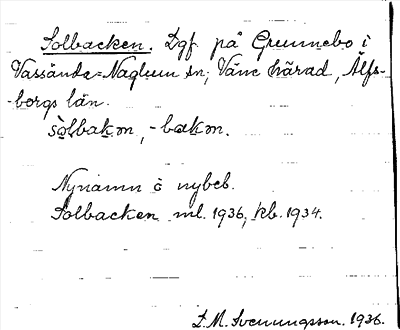 Solbacken. Lgf. på Grunnebo i
Vassända-Naglum sn; Väne härad, Älfs-
-borgs län.
sòlbakən, -bakən.
Nynamn å nybeb.
Solbacken ml. 1936, kb. 1934.
L.M. Svenungsson. 1936.